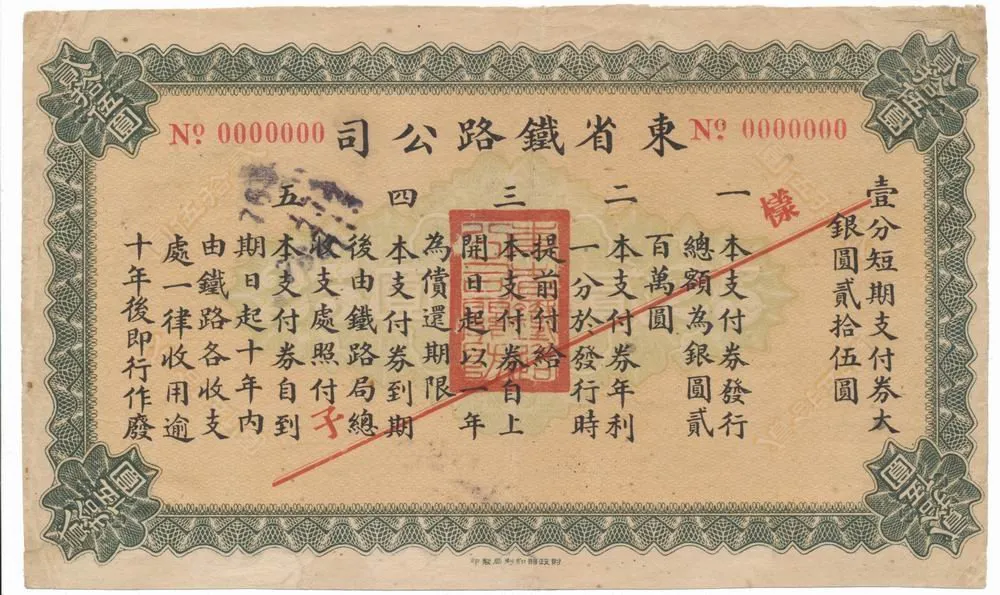 東省鐵路公司
No. 0000000
No. 0000000
壹分短期支付券大
銀圓貳拾伍圓
一 本支付券發行
總額為銀圓貳
百萬圓
二 本支付券年利
一分於發行時
提前付給
三 本支付券自上
開日起以一年
為償還期限
四 本支付券到期
後由鐵路局總
收支處照付
五 本支付券自到
期日起十年內
由鐵路各收支
處一律收用逾
十年後即行作廢
樣子
貳拾伍圓
貳拾伍圓
貳拾伍圓
貳拾伍圓
財政部印刷局製印